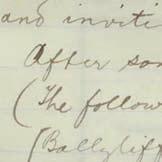 and inviti
After son
(The follow
(Ballyliff